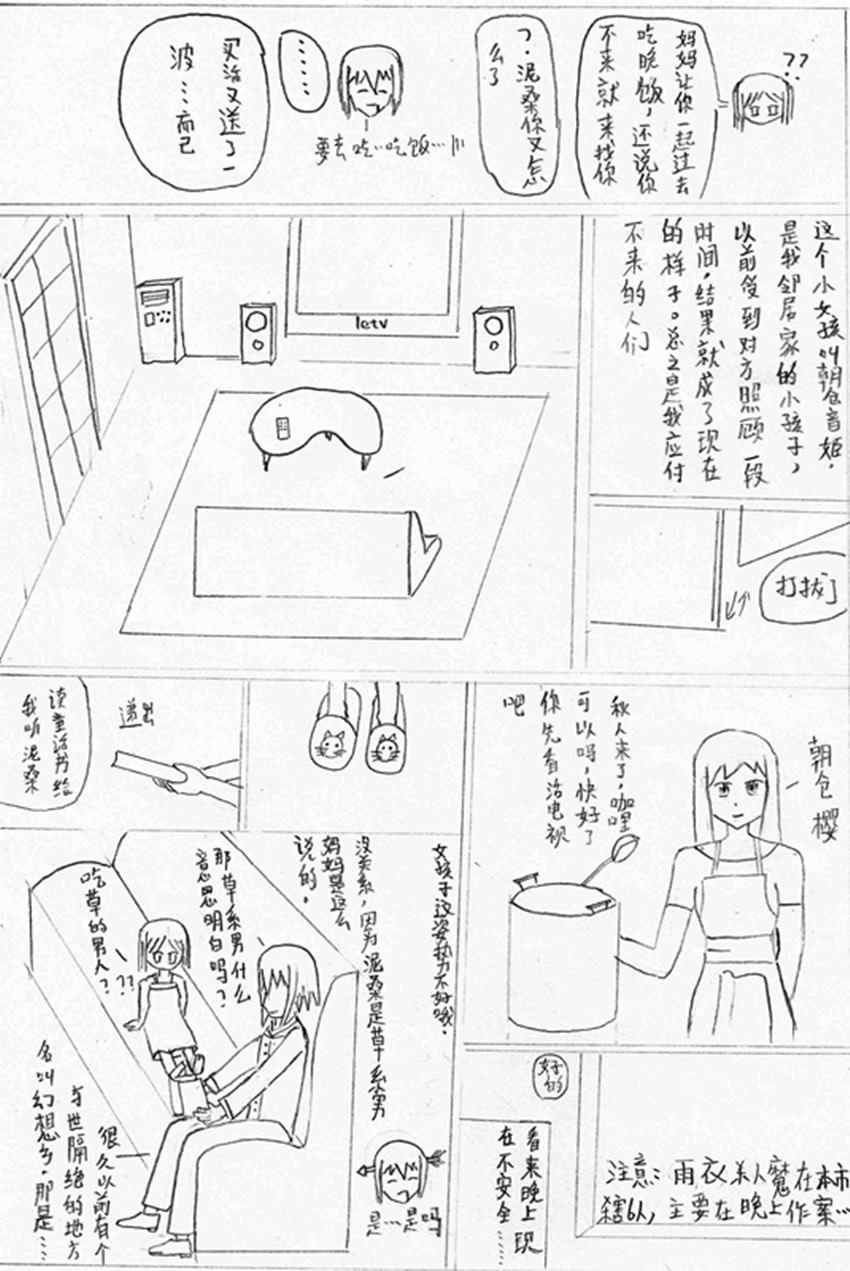 ??
妈妈让你一起过去
吃晚饭，还说你
不来就来找你
？泥桑你又怎
么了
……
要去吃…吃饭…
买活又送了一
波…而已
这个小女孩叫朝仓音姬，
是我邻居家的小孩子，
以前受到对方照顾一段
时间，结果就成了现在
的样子。总之是我应付
不来的人们
letv
打扰了
秋人来了，咖喱
可以吗，快好了
你先看活电视
吧
朝仓樱
递出
读童话书给
我听泥桑
女孩子这姿势不好哦。
没关系，因为泥桑是草系男
妈妈是这么
说的。
那草系男什么
意思明白吗？
吃草的男人？
??
是…是吗
很久以前有个
与世隔绝的地方
名叫幻想乡，那是……
好的
注意：雨衣杀人魔在本市
杀害6人，主要在晚上作案…
看来晚上现
在不安全……